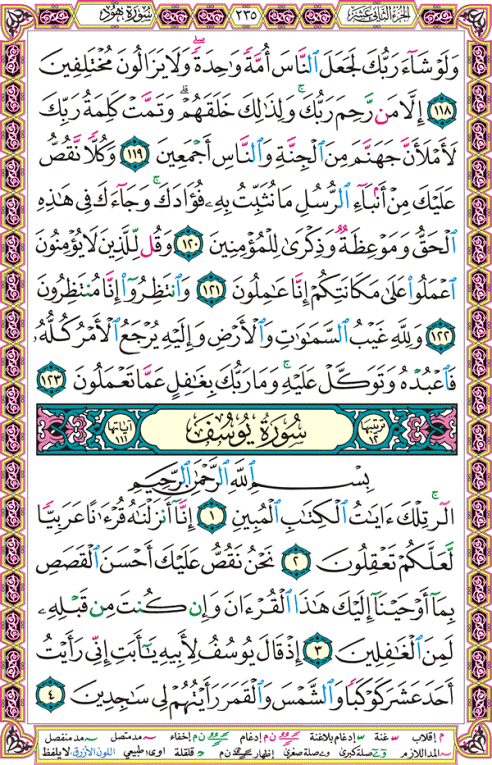 الجزء الثاني عشر ٢٣٥ سورة هود
وَلَوْ شَآءَ رَبُّكَ لَجَعَلَ ٱلنَّاسَ أُمَّةً وَٰحِدَةً ۖ وَلَا يَزَالُونَ مُخْتَلِفِينَ
١١٨ إِلَّا مَن رَّحِمَ رَبُّكَ ۚ وَلِذَٰلِكَ خَلَقَهُمْ ۗ وَتَمَّتْ كَلِمَةُ رَبِّكَ
لَأَمْلَأَنَّ جَهَنَّمَ مِنَ ٱلْجِنَّةِ وَٱلنَّاسِ أَجْمَعِينَ ١١٩ وَكُلًّا نَّقُصُّ
عَلَيْكَ مِنْ أَنۢبَآءِ ٱلرُّسُلِ مَا نُثَبِّتُ بِهِۦ فُؤَادَكَ ۚ وَجَآءَكَ فِى هَٰذِهِ
ٱلْحَقُّ وَمَوْعِظَةٌ وَذِكْرَىٰ لِلْمُؤْمِنِينَ ١٢٠ وَقُل لِّلَّذِينَ لَا يُؤْمِنُونَ
ٱعْمَلُوا۟ عَلَىٰ مَكَانَتِكُمْ إِنَّا عَٰمِلُونَ ١٢١ وَٱنتَظِرُوٓا۟ إِنَّا مُنتَظِرُونَ
١٢٢ وَلِلَّهِ غَيْبُ ٱلسَّمَٰوَٰتِ وَٱلْأَرْضِ وَإِلَيْهِ يُرْجَعُ ٱلْأَمْرُ كُلُّهُۥ
فَٱعْبُدْهُ وَتَوَكَّلْ عَلَيْهِ ۚ وَمَا رَبُّكَ بِغَٰفِلٍ عَمَّا تَعْمَلُونَ ١٢٣
ترتيبها ١٢ سورة يوسف آياتها ١١١
بِسْمِ ٱللَّهِ ٱلرَّحْمَٰنِ ٱلرَّحِيمِ
الٓر ۚ تِلْكَ ءَايَٰتُ ٱلْكِتَٰبِ ٱلْمُبِينِ ١ إِنَّآ أَنزَلْنَٰهُ قُرْءَٰنًا عَرَبِيًّا
لَّعَلَّكُمْ تَعْقِلُونَ ٢ نَحْنُ نَقُصُّ عَلَيْكَ أَحْسَنَ ٱلْقَصَصِ
بِمَآ أَوْحَيْنَآ إِلَيْكَ هَٰذَا ٱلْقُرْءَانَ وَإِن كُنتَ مِن قَبْلِهِۦ
لَمِنَ ٱلْغَٰفِلِينَ ٣ إِذْ قَالَ يُوسُفُ لِأَبِيهِ يَٰٓأَبَتِ إِنِّى رَأَيْتُ
أَحَدَ عَشَرَ كَوْكَبًا وَٱلشَّمْسَ وَٱلْقَمَرَ رَأَيْتُهُمْ لِى سَٰجِدِينَ ٤
م إقلاب غنة إدغام بلاغنة ن م إدغام ن م إخفاء مد متصل مد منفصل
المد اللازم صلة كبرى وصلة صغرى إظهار ن م قلقلة اوى: طبيعي اللون الأزرق: لا يلفظ